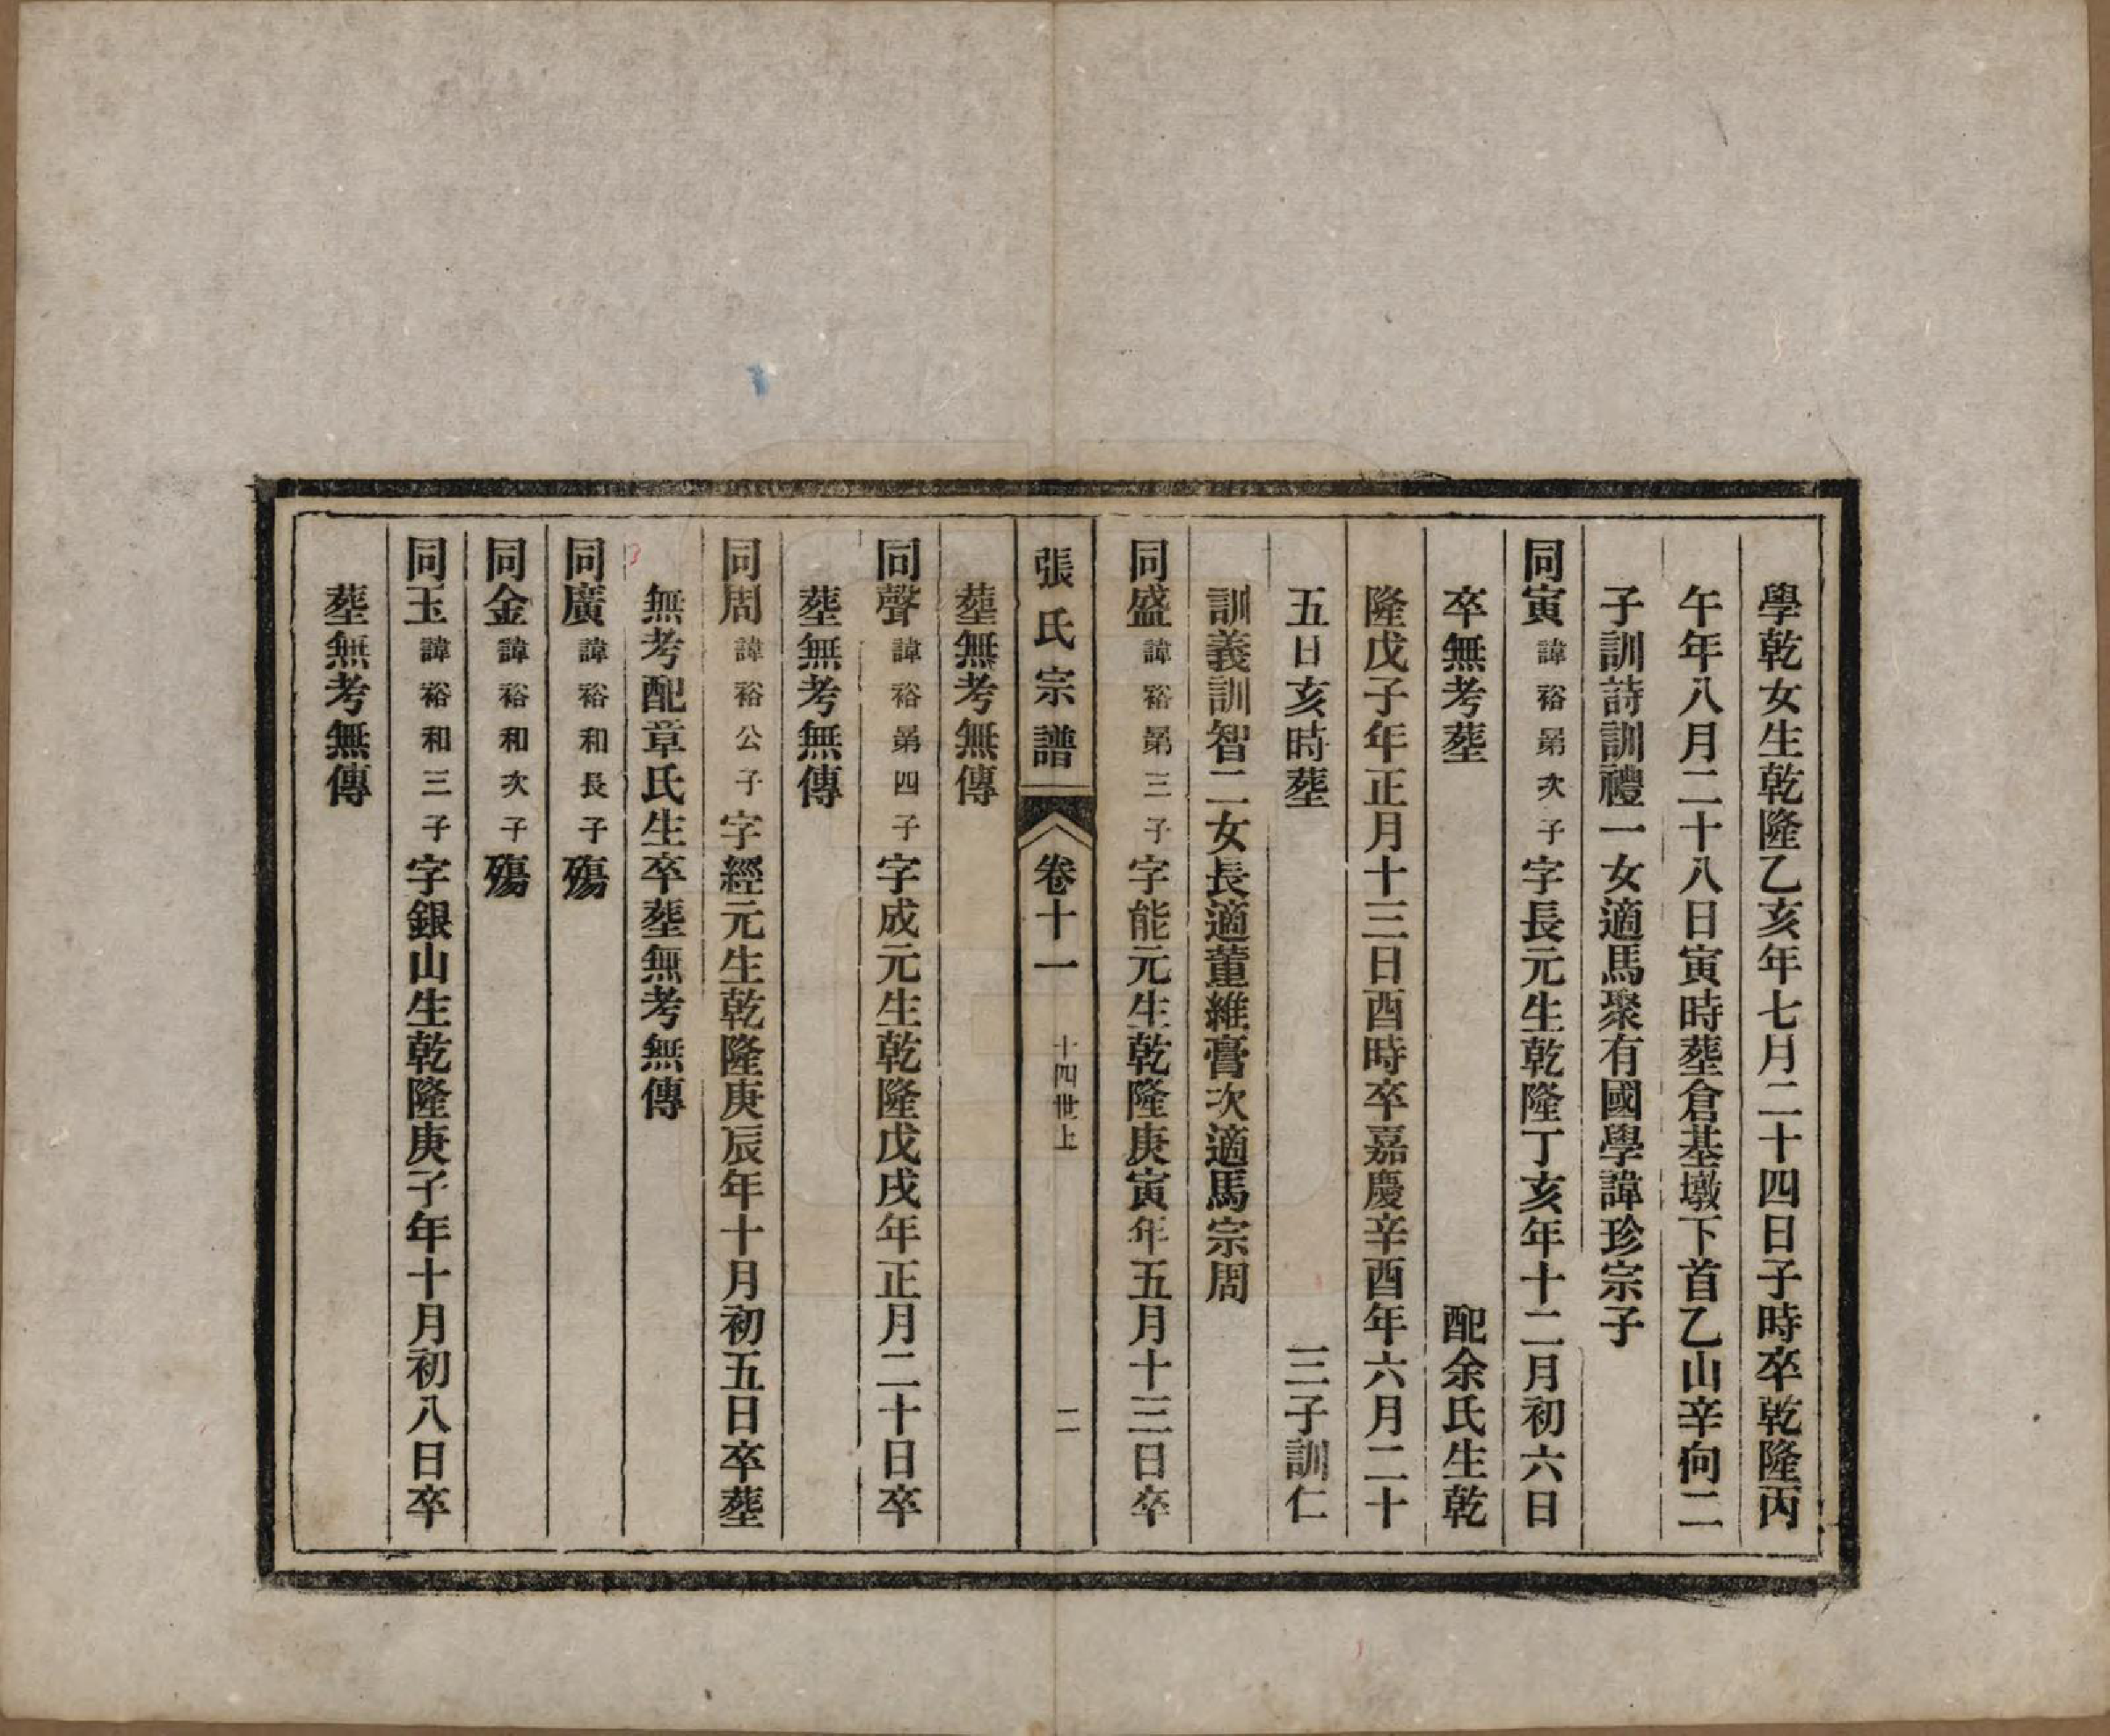 學乾女生乾隆乙亥年七月二十四日子時卒乾隆丙
午年八月二十八日寅時塟倉基墩下首乙山辛向二
子訓詩訓禮一女適馬聚有國學諱珍宗子
同寅諱裕第次子字長元生乾隆丁亥年十二月初六日
卒無考塟 配余氏生乾
隆戊子年正月十三日酉時卒嘉慶辛酉年六月二十
五日亥時塟 三子訓仁
訓義訓智二女長適董維膏次適馬宗周
同盛諱裕第三子字能元生乾隆庚寅年五月十三日卒
塟無考無傳
張氏宗譜 卷十一 十四世上 二
同聲諱裕第四子字成元生乾隆戊戌年正月二十日卒
塟無考無傳
同周諱裕公子字經元生乾隆庚辰年十月初五日卒塟
無考配章氏生卒塟無考無傳
同廣諱裕和長子殤
同金諱裕和次子殤
同玉諱裕和三子字銀山生乾隆庚子年十月初八日卒
塟無考無傳